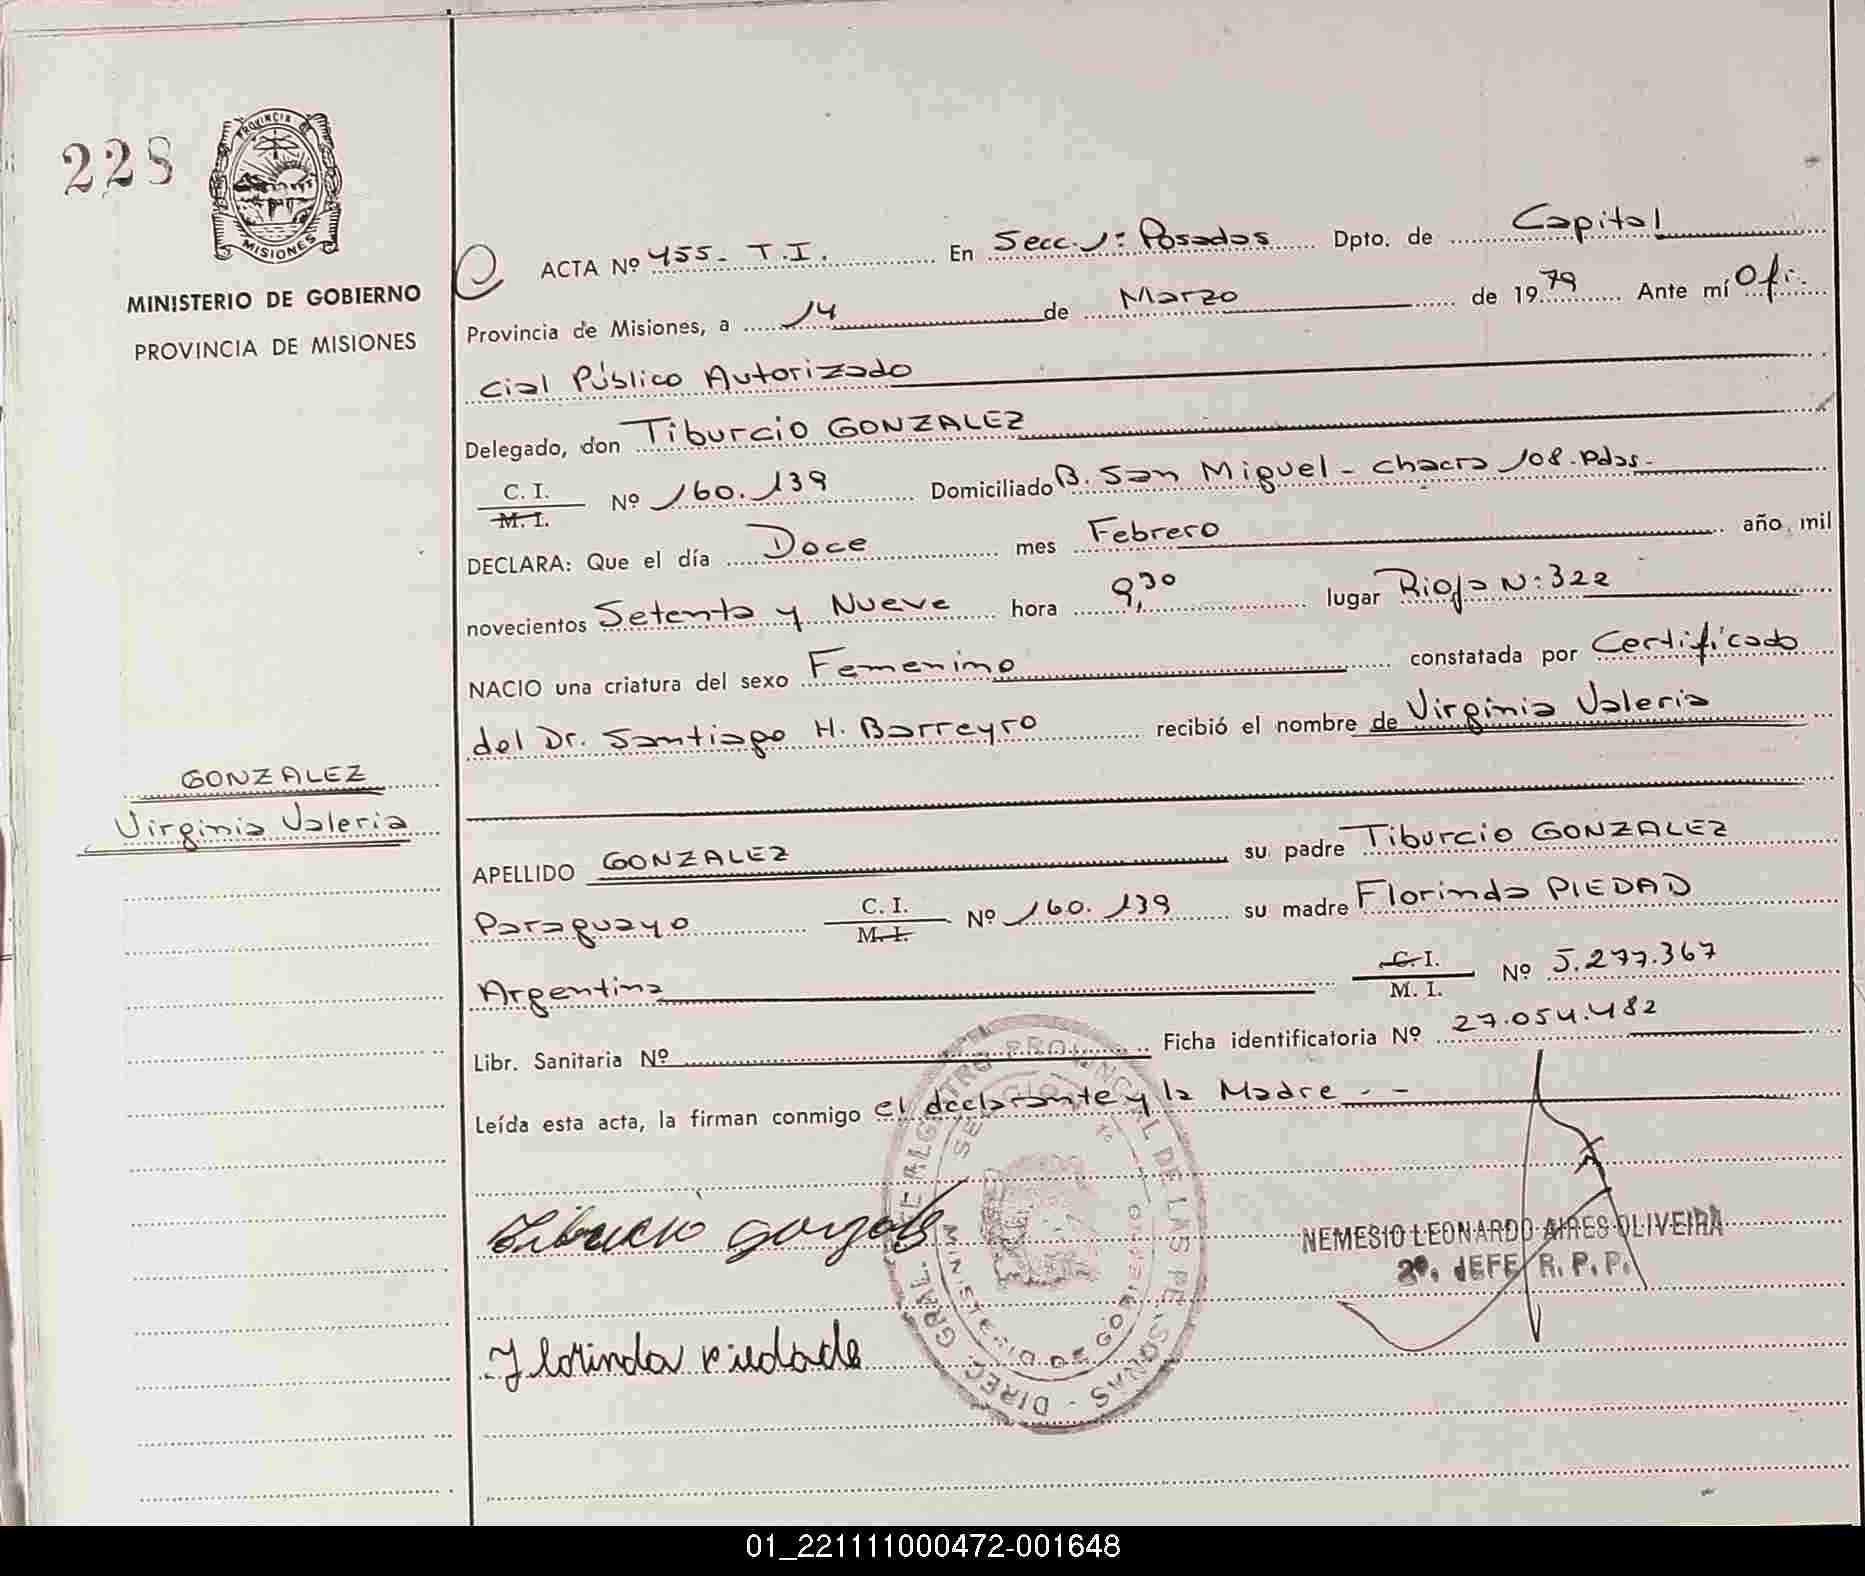 228
PROVINCIA DE
MISIONES
MINISTERIO DE GOBIERNO
PROVINCIA DE MISIONES
GONZALEZ
Virginia Valeria
ACTA Nº 455 - T.I. En Secc. 1: Posadas Dpto. de Capital
Provincia de Misiones, a 14 de Marzo de 1979 Ante mí Ofi-
cial Público Autorizado
Delegado, don Tiburcio GONZALEZ
C. I.
M. I. Nº 160.139 Domiciliado B. San Miguel - chacra 108. Pdas.-
DECLARA: Que el día Doce mes Febrero año mil
novecientos Setenta y Nueve hora 9,30 lugar Rioja N: 322
NACIO una criatura del sexo Femenino constatada por Certificado
del Dr. Santiago H. Barreyro recibió el nombre de Virginia Valeria
APELLIDO GONZALEZ su padre Tiburcio GONZALEZ
Paraguayo C. I. M. I. Nº 160.139 su madre Florinda PIEDAD
Argentina C. I. M. I. Nº 5.277.367
Libr. Sanitaria Nº Ficha identificatoria Nº 27.054.482
Leída esta acta, la firman conmigo el declarante y la Madre.-
Tiburcio Gonzalez
NEMESIO LEONARDO AIRES OLIVEIRA
2º. JEFE R. P. P.
Florinda Piedade
DIREC. GRAL. DE REGISTRO PROVINCIAL DE LAS PERSONAS
MINISTERIO DE GOBIERNO
01_221111000472-001648